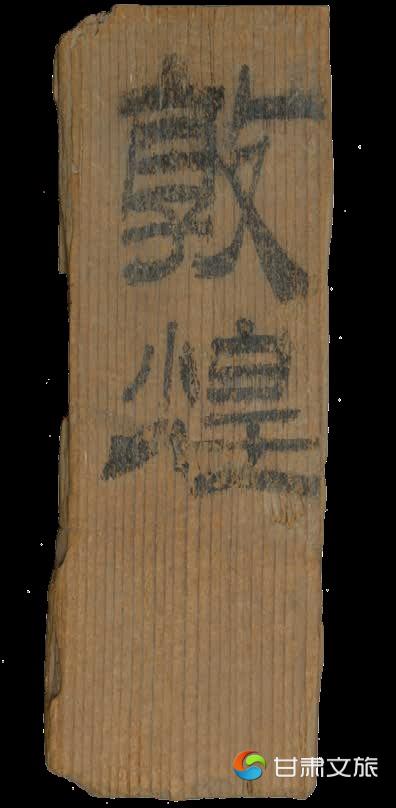 敦
煌
甘肃文旅